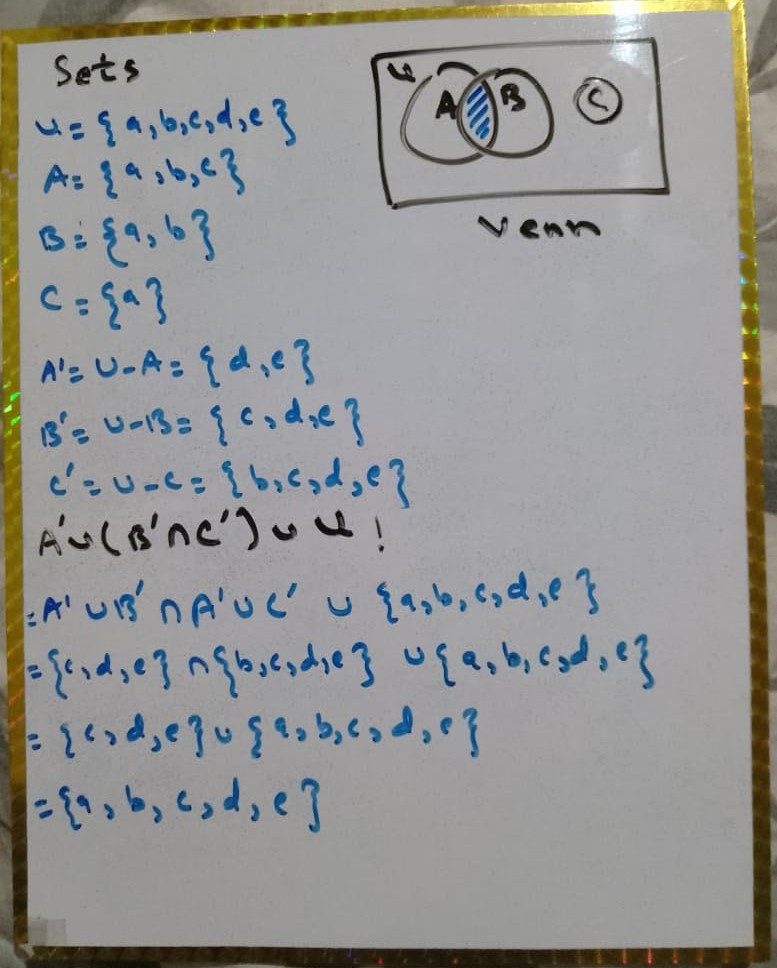 Sets
U = {a,b,c,d,e}
A = {a,b,c}
B = {a,b}
C = {a}
A' = U-A = {d,e}
B' = U-B = {c,d,e}
C' = U-C = {b,c,d,e}
A'∪(B'∩C')∪U!
= A'∪B'∩A'∪C' ∪ {a,b,c,d,e}
= {c,d,e}∩{b,c,d,e} ∪{a,b,c,d,e}
= {c,d,e}∪{a,b,c,d,e}
= {a,b,c,d,e}
U
A B C
Venn